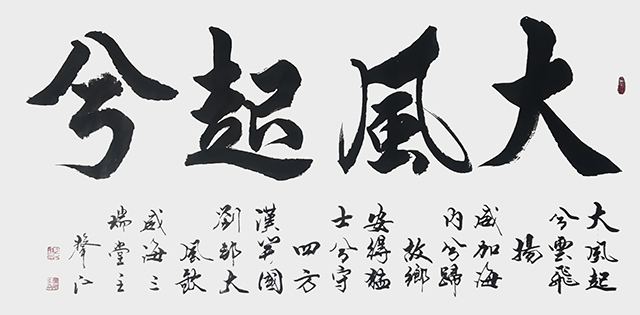 大風起兮
大風起
兮雲飛
揚
威加海
內兮歸
故鄉
安得猛
士兮守
四方
漢開國
劉邦大
風歌
威海三
瑞堂主
江